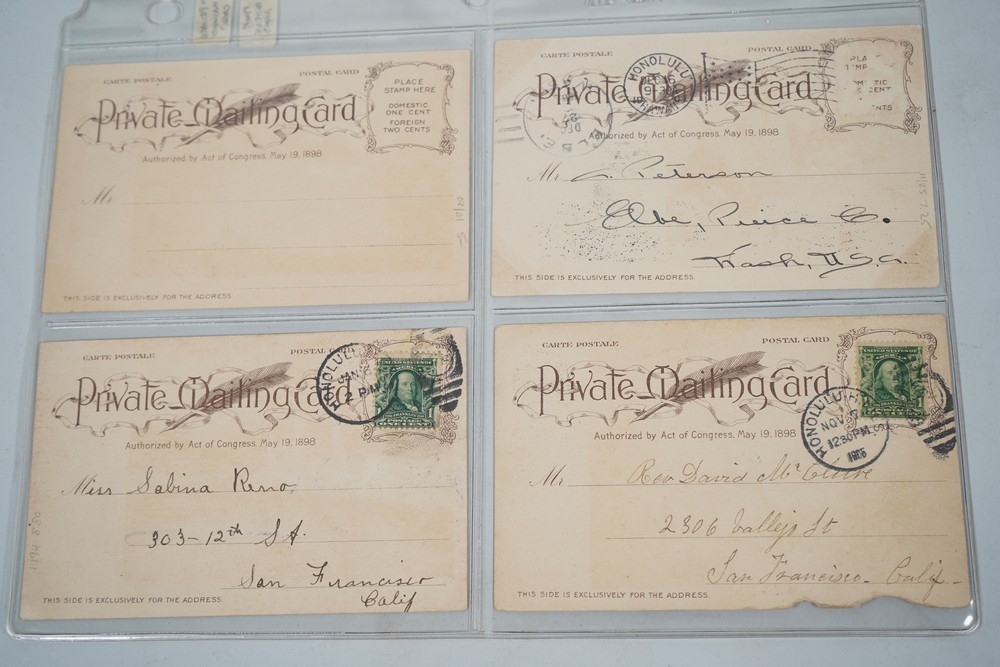 CARTE POSTALE POSTAL CARD
Private Mailing Card
PLACE
STAMP HERE
DOMESTIC
ONE CENT
FOREIGN
TWO CENTS
Authorized by Act of Congress, May 19, 1898
Mr
THIS SIDE IS EXCLUSIVELY FOR THE ADDRESS.
CARTE POSTALE POSTAL CARD
Private Mailing Card
HONOLULU
HAWAII
DEC
27
Authorized by Act of Congress, May 19, 1898
Mr Peterson
Elbe, Pierce Co.
Wash, U.S.A.
THIS SIDE IS EXCLUSIVELY FOR THE ADDRESS.
CARTE POSTALE POSTAL CARD
Private Mailing Card
HONOLULU
JAN
2 PM
1
Authorized by Act of Congress, May 19, 1898
Miss Sabina Reno,
303-12th St.
San Francisco
Calif
THIS SIDE IS EXCLUSIVELY FOR THE ADDRESS.
11194 8.80
CARTE POSTALE POSTAL CARD
Private Mailing Card
HONOLULU
NOV
12:30PM
1906
1
Authorized by Act of Congress, May 19, 1898
Mr Rev David McClure
2306 Vallejo St
San Francisco - Calif -
THIS SIDE IS EXCLUSIVELY FOR THE ADDRESS